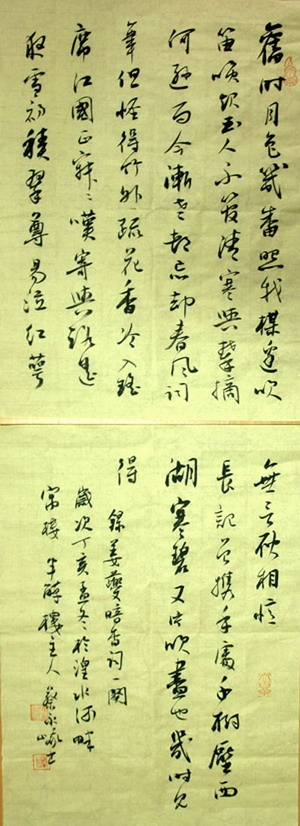 舊时月色幾番照我楳邊吹
笛喚起玉人不管清寒與攀摘
何遜而今漸老都忘却春風詞
筆但怪得竹外疏花香冷入瑤
席江國正寂〻嘆寄與路遙
夜雪初積翠尊易泣紅萼
無言耿相憶
長記曾攜手處千樹壓西
湖寒碧又片吹盡也幾时見
得
錄姜夔暗香詞一闋
歲次丁亥孟冬於湟水河畔
寓樓 半醉樓主人 蔡永